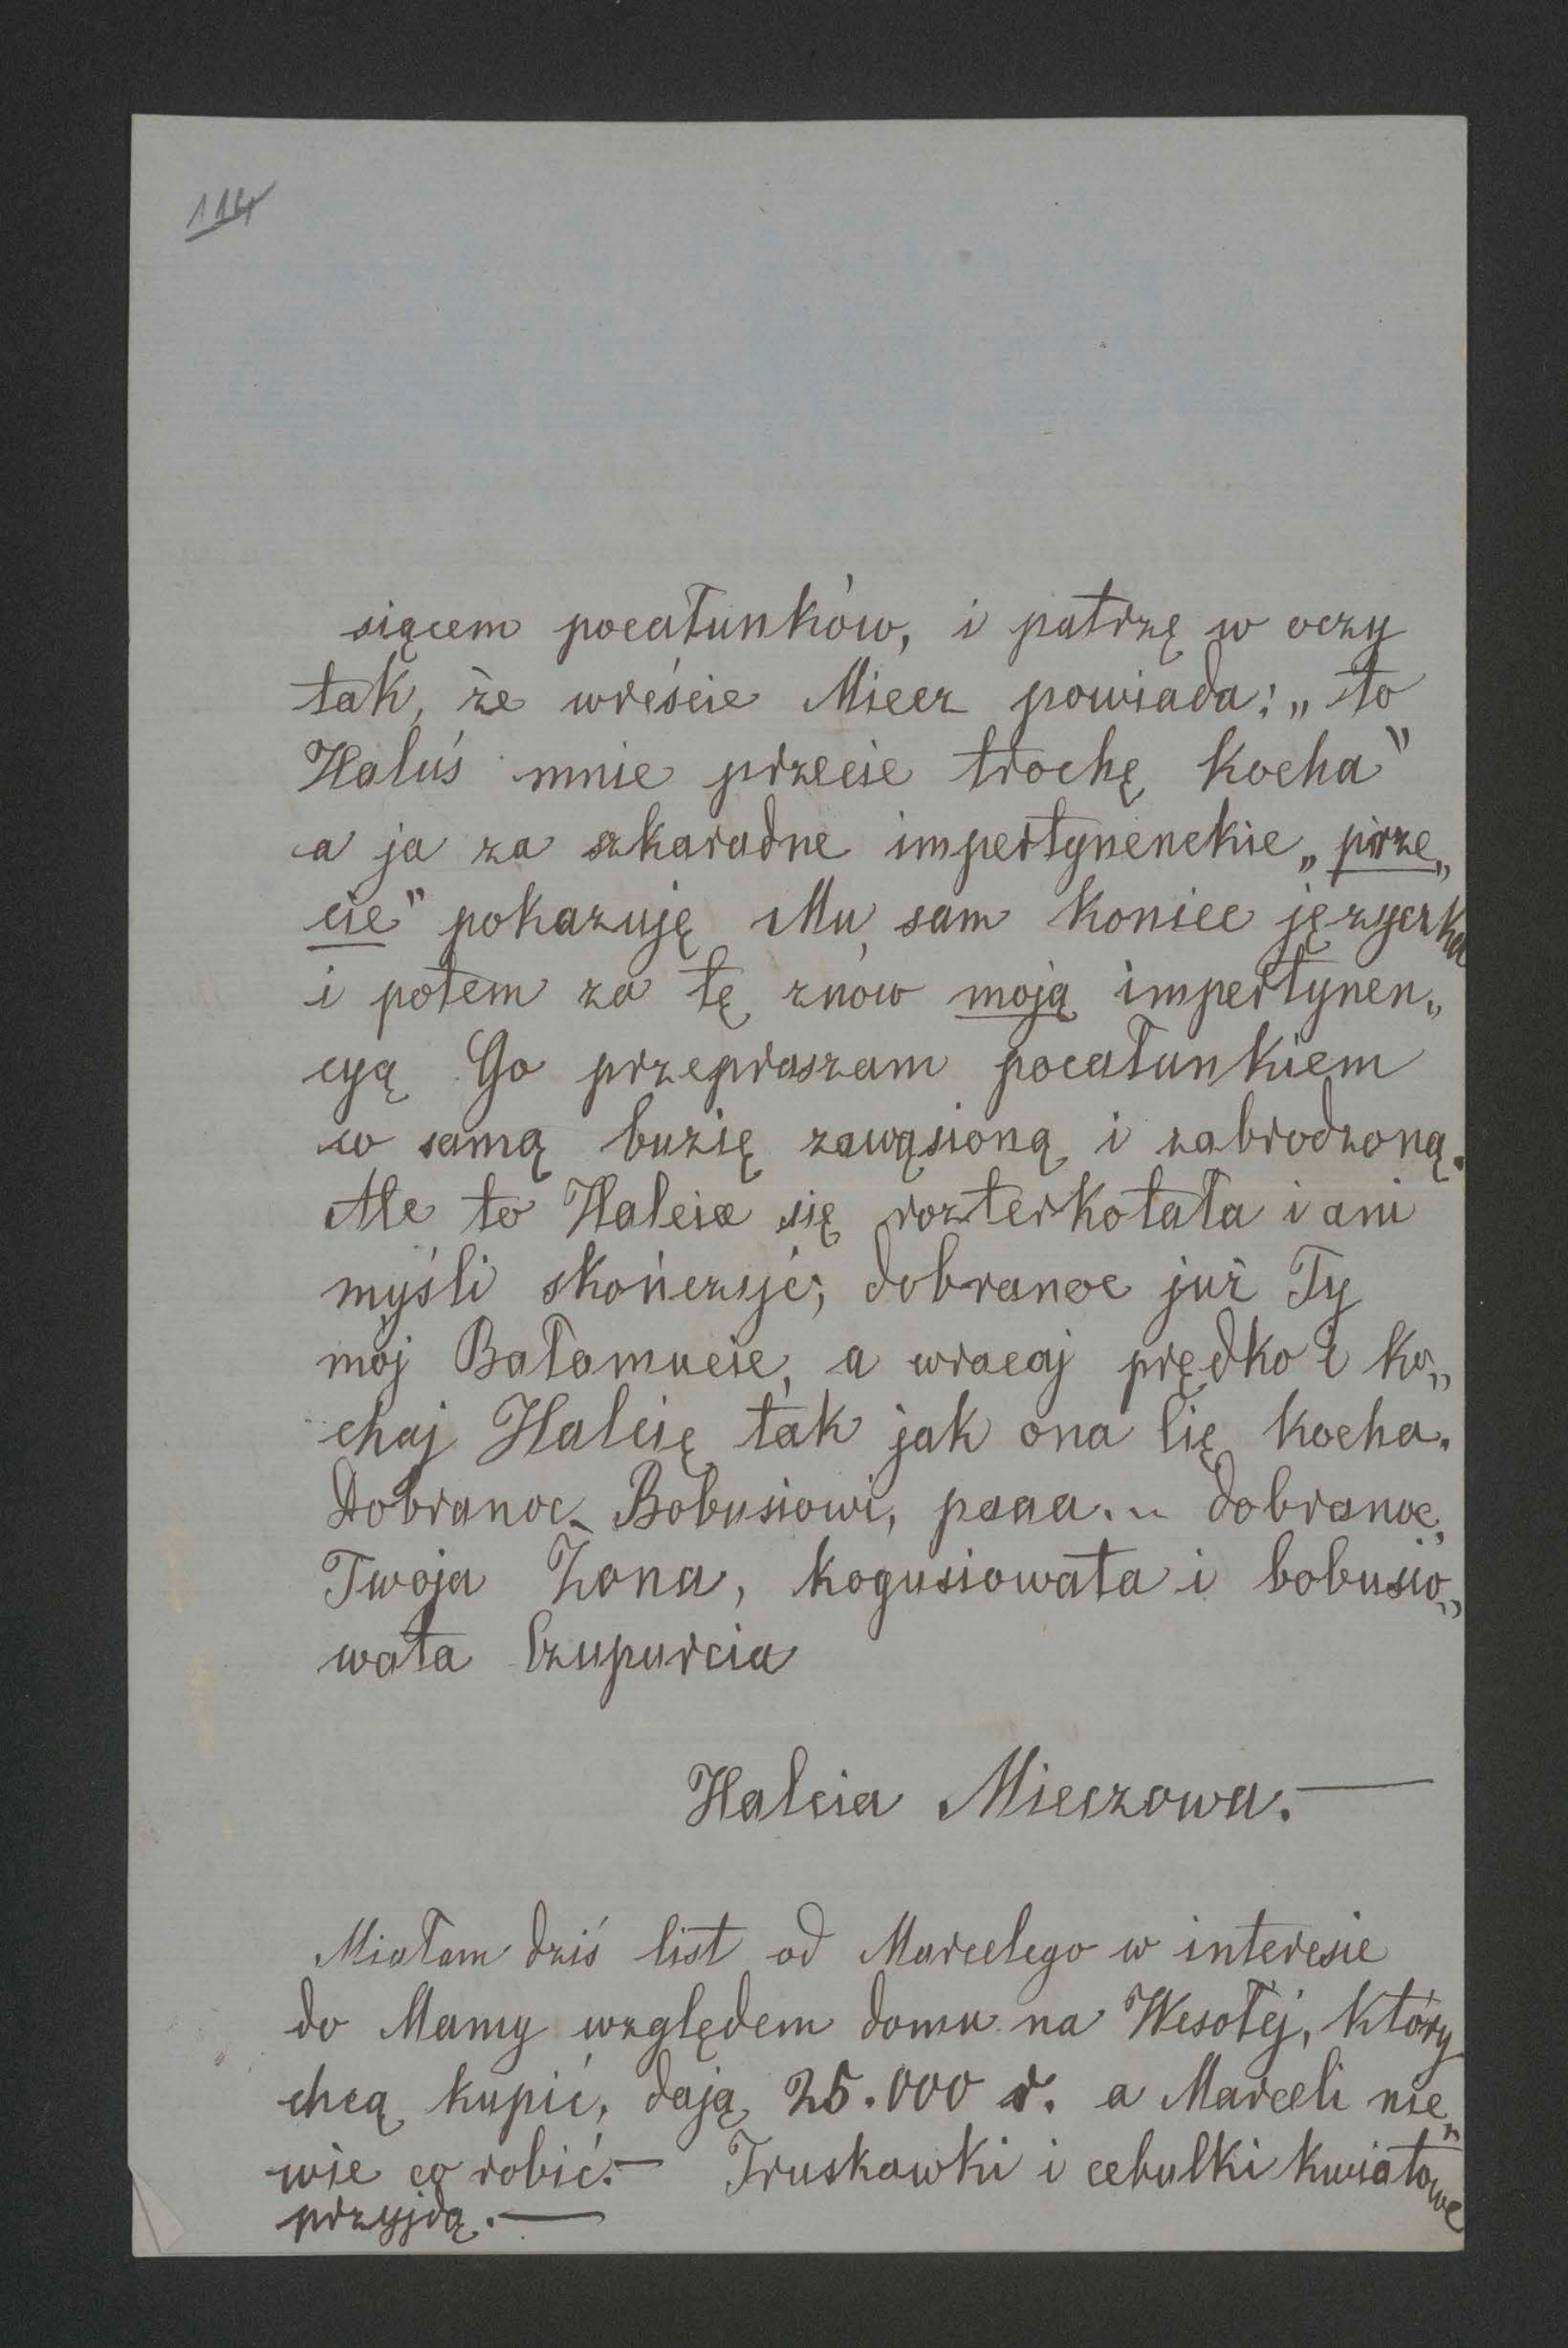 114
siącem pocałunków, i patrzę w oczy
tak, że wreście Miecz powiada: „to
Haluś mnie przecie trochę kocha"
a ja za szkaradne impertynenckie „prze„
cie" pokazuję Mu sam koniec języczka
i potem za tę znów moją impertynen„
cyą Go przepraszam pocałunkiem
w samą buzię zawąsioną i zabrodzoną.
Ale to Halcia się rozterkotała i ani
myśli skończyć; dobranoc już Ty
mój Bałamucie, a wracaj prędko i ko„
chaj Halcię tak jak ona Cię kocha.
Dobranoc Bobusiowi, paaa... dobranoc,
Twoja Żona, kogusiowata i bobusio„
wata Czupurcia
Halcia Mieczowa.—
Miałam dziś list od Marcelego w interesie
do Mamy względem domu na Wesołéj, który
chcą kupić, dają 25.000 r. a Marceli nie„
wie co robić.— Truskawki i cebulki kwiatowe
przyjdą.—